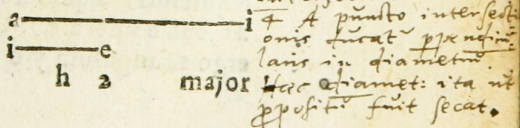 a i
i e
h 2 major
4 A puncto intersecti
onis ducatʳ ppendicu
laris in diametrũ
Hæc diamet: ita ut
ppositũ fuit secat.